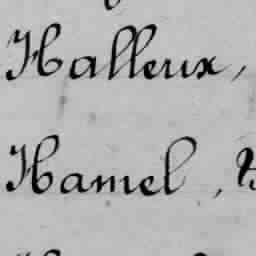 Halleux,
Hamel,